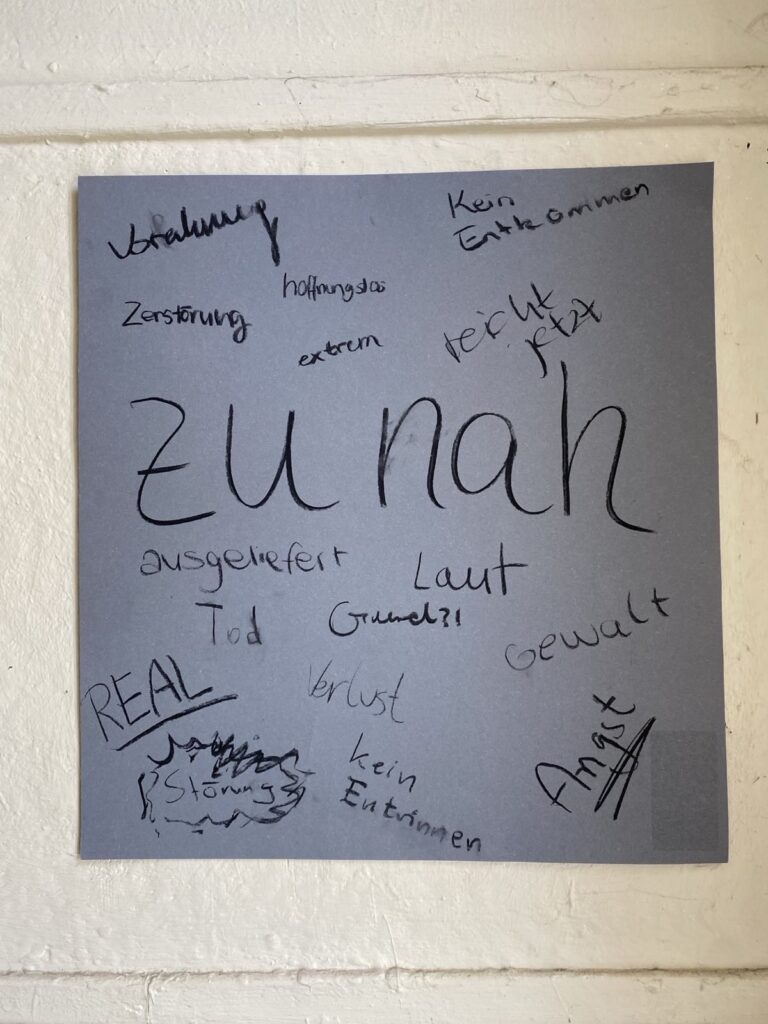 Vorahnung
Kein
Entkommen
hoffnungslos
Zerstörung
reicht
jetzt
extrem
zu nah
ausgeliefert
Laut
Tod
Grund?!
Gewalt
REAL
Verlust
Angst
Störung
kein
Entrinnen